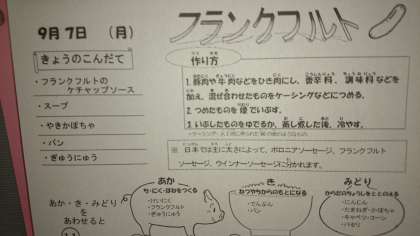 9月7日　（月）
フランクフルト
きょうのこんだて
・フランクフルトの
ケチャップソース
・スープ
・やきかぼちゃ
・パン
・ぎゅうにゅう
作り方
1. 豚肉や牛肉などをひき肉にし、香辛料、調味料などを
加え、混ぜ合わせたものをケーシングなどにつめる。
2. つめたものを煙でいぶす。
3. いぶしたものをゆでるか、蒸し煮した後、冷やす。
※ 日本では主に太さによって、ボロニアソーセージ、フランクフルト
ソーセージ、ウインナーソーセージに分かれます。
あか・き・みどり
を
あわせると
あか
ち・にく・ほねをつくる
・けいにく
・フランクフルト
・ぎゅうにゅう
き
ねつやちからのもとになる
・でんぷん
・パン
みどり
からだのちょうしをととのえる
・にんじん
・たまねぎ・かぼちゃ
・キャベツ・コーン
・パセリ